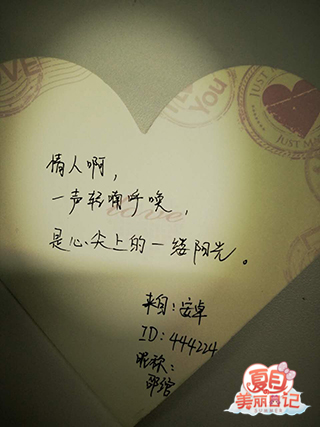 情人啊，
一声轻喃呼唤，
是心尖上的一缕阳光。
love
来自：安卓
ID：444224
昵称：
LOVE
You
JUST
JUST MA
夏日
美丽日记